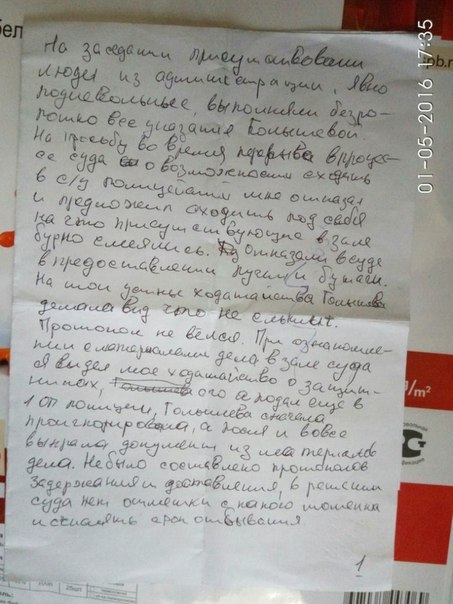 На заседании присутствовали
люди из администрации, явно
подневольные, выполняли безро-
потно все указания Голышевой.
На просьбу во время перерыва в процес-
се суда о возможности сходить
в с/у полицейский мне отказал
и предложил сходить под себя
на что присутствующие в зале
бурно смеялись. Отказали в суде
в предоставлении ручки и бумаги.
На мои устные ходатайства Голышева
делала вид что не слышит.
Протокол не велся. При ознакомле-
нии с материалами дела в зале суда
я видел мое ходатайство о защит-
никах, его я подал ещё в
1 ОП полиции, Голышева сначала
проигнорировала, а после и вовсе
выкрала документ из материалов
дела. Не было составлено протоколов
задержания и доставления, в решении
суда нет отметки с какого момента
исчислять срок отбывания
1
01-05-2016 17:35
бел
pb.r
/m²